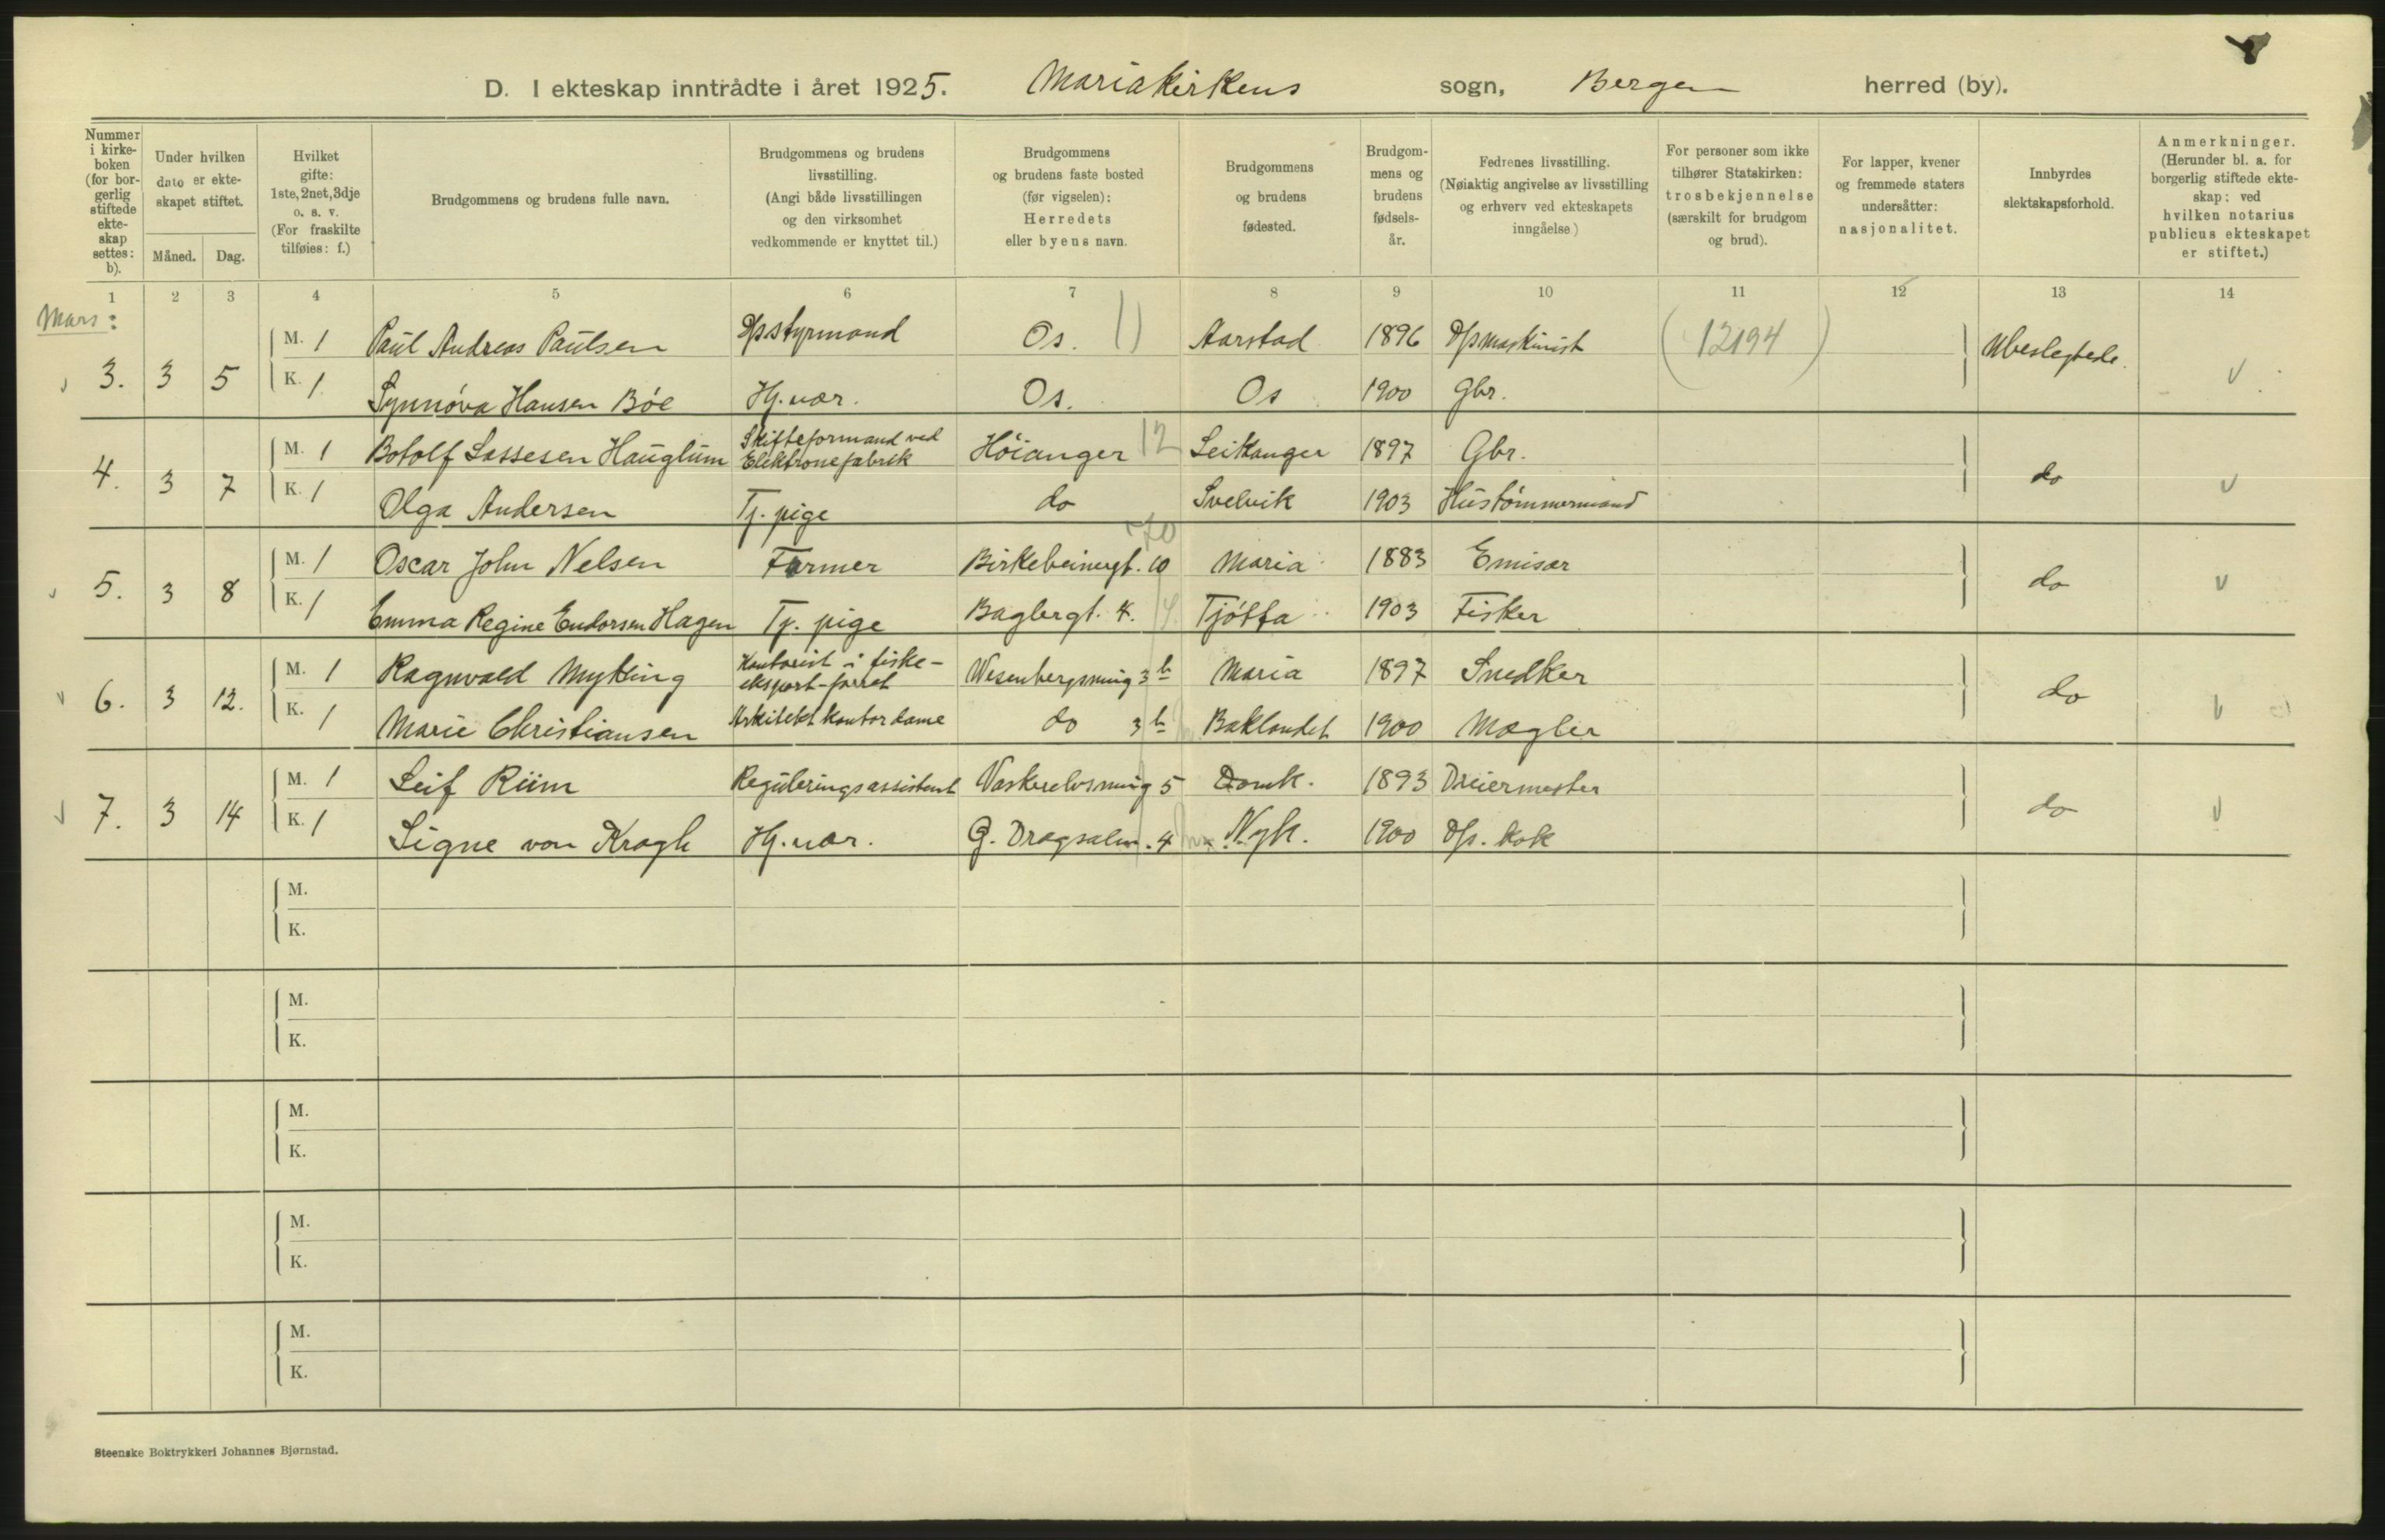 D. I ekteskap inntrådte i året 1925. Mariakirkens sogn, Bergen herred (by).
Nummer i kirkeboken (for borgerlig stiftede ekteskap settes: b).
Under hvilken dato er ekteskapet stiftet.
Måned. Dag.
Hvilket gifte: 1ste, 2net, 3dje o. s. v. (For fraskilte tilføies: f.)
Brudgommens og brudens fulle navn.
Brudgommens og brudens livsstilling. (Angi både livsstillingen og den virksomhet vedkommende er knyttet til.)
Brudgommens og brudens faste bosted (før vigselen): Herredets eller byens navn.
Brudgommens og brudens fødested.
Brudgommens og brudens fødselsår.
Fedrenes livsstilling. (Nøiaktig angivelse av livsstilling og erhverv ved ekteskapets inngåelse)
For personer som ikke tilhører Statskirken: trosbekjennelse (særskilt for brudgom og brud).
For lapper, kvener og fremmede staters undersåtter: nasjonalitet.
Innbyrdes slektskapsforhold.
Anmerkninger. (Herunder bl. a. for borgerlig stiftede ekteskap: ved hvilken notarius publicus ekteskapet er stiftet.)
1 2 3 4 5 6 7 8 9 10 11 12 13 14
Mars:
3. 3 5 M. 1 Paul Andreas Paulsen Dpsstyrmand Os. 11 Aarstad 1896 Dpsmaskinist (12194) Ubeslegtede.
K. 1 Synnóva Hansen Bóe Hj. vær. Os. Os 1900 Gbr.
4. 3 7 M. 1 Botolf Lassesen Hauglum Skifteformand ved Elektrodefabrik Hóianger 12 Leikanger 1897 Gbr. do
K. 1 Olga Andersen Tj. pige do Svelvik 1903 Hustómmermand
5. 3 8 M. 1 Oscar John Nelsen Farmer Birkebeinergt. 10 Maria 1883 Emisær do
K. 1 Emma Regine Endorsen Hagen Tj. pige Baglergt. 4. Tjótta 1903 Fisker
6. 3 12. M. 1 Ragnvald Myking Kontorist i fiske-eksport-forret Wesenbergsmug 3 b Maria 1897 Snedker do
K. 1 Marie Christiansen Arkitekt kontordame do 3 b Baklandet 1900 Mægler
7. 3 14 M. 1 Leif Riim Reguleringsassistent Vaskerelvsmug 5 Domk. 1893 Dreiermester do
K. 1 Signe von Kragh Hj. vær. G. Dragsalm. 4 Nyk. 1900 Dps. kok
M.
K.
M.
K.
M.
K.
M.
K.
M.
K.
Steenske Boktrykkeri Johannes Bjørnstad.